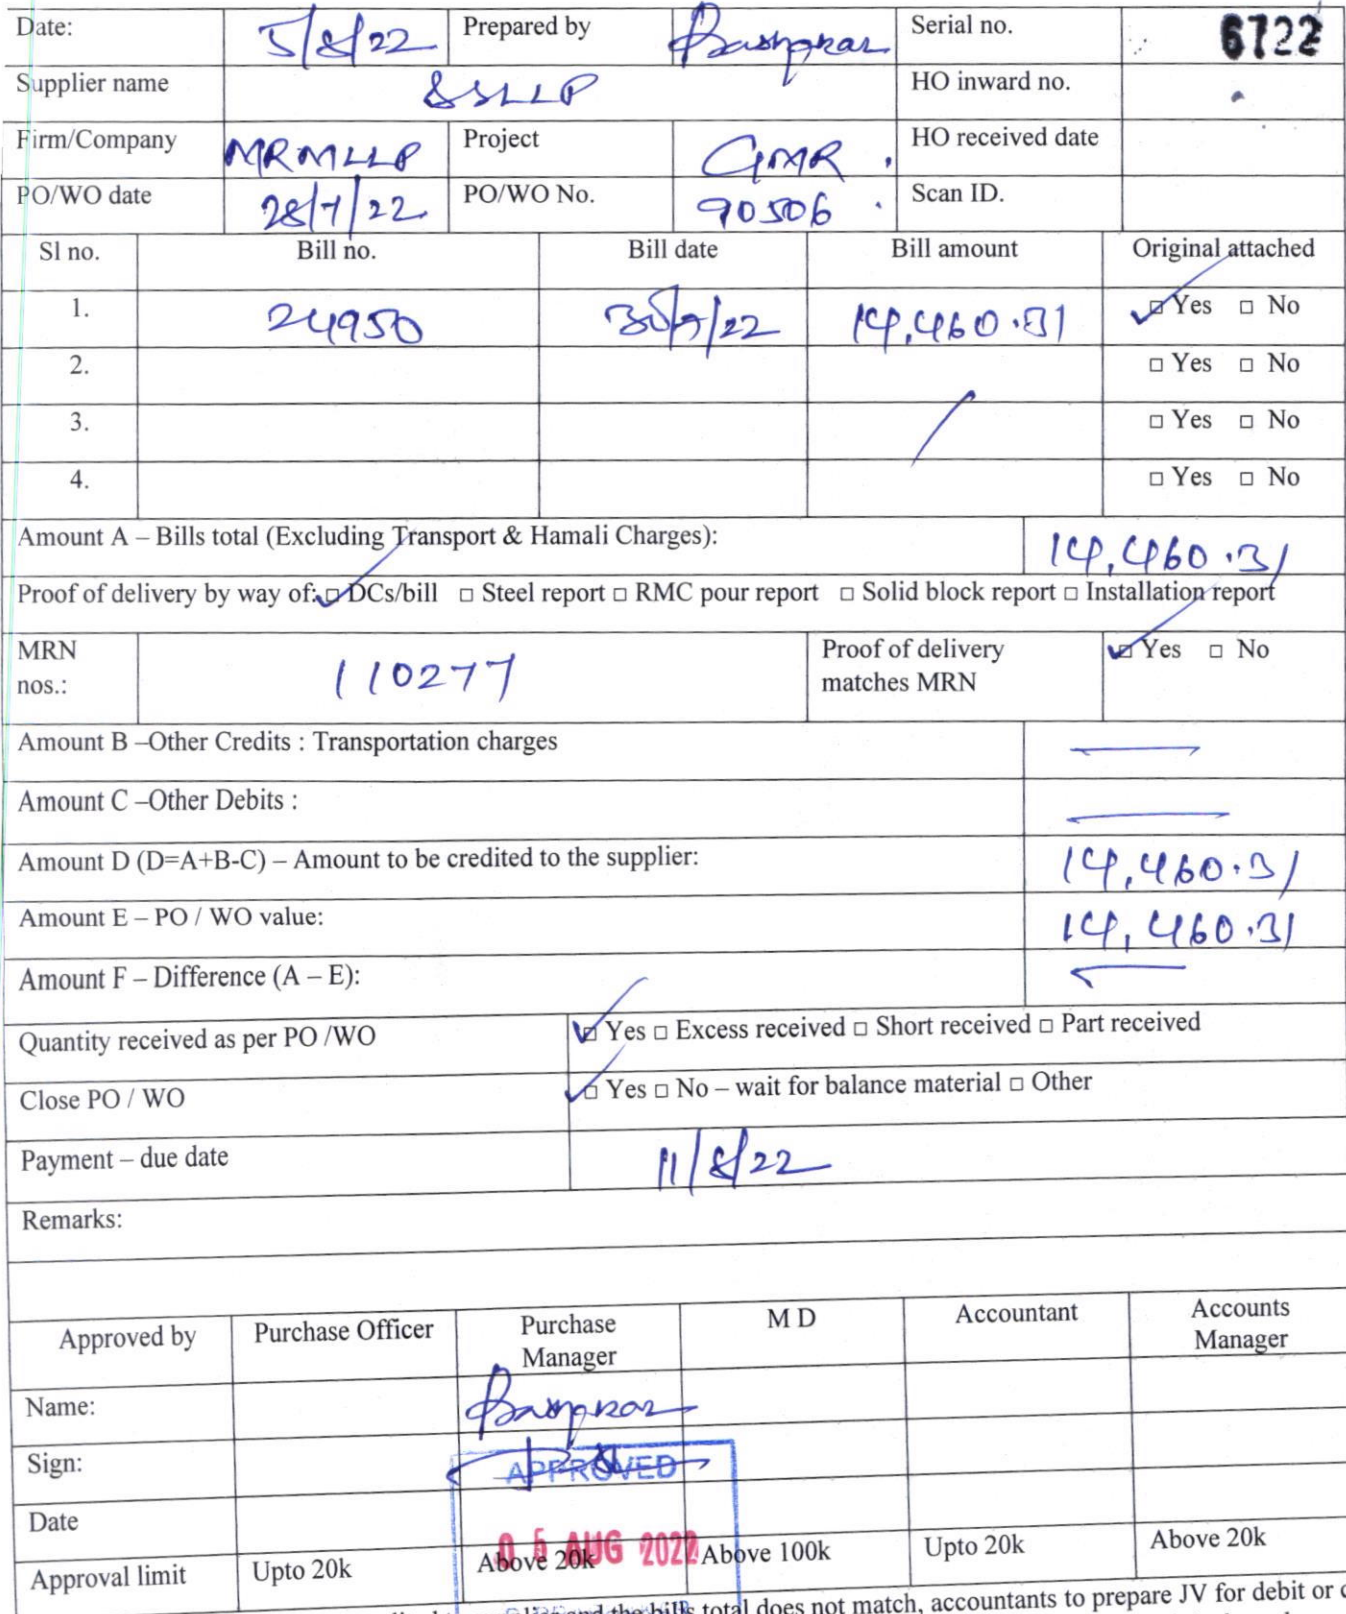 Date: 5/8/22 Prepared by Bashpkar Serial no. 6722
Supplier name SSLLP HO inward no.
Firm/Company MRMLLP Project GMR HO received date
PO/WO date 28/7/22 PO/WO No. 90506 Scan ID.
Sl no. Bill no. Bill date Bill amount Original attached
1. 24950 30/7/22 14,460.31 ☑ Yes □ No
2. □ Yes □ No
3. □ Yes □ No
4. □ Yes □ No
Amount A – Bills total (Excluding Transport & Hamali Charges): 14,460.31
Proof of delivery by way of: ☑ DCs/bill □ Steel report □ RMC pour report □ Solid block report □ Installation report
MRN nos.: 110277 Proof of delivery matches MRN ☑ Yes □ No
Amount B –Other Credits : Transportation charges —
Amount C –Other Debits : —
Amount D (D=A+B-C) – Amount to be credited to the supplier: 14,460.31
Amount E – PO / WO value: 14,460.31
Amount F – Difference (A – E): —
Quantity received as per PO /WO ☑ Yes □ Excess received □ Short received □ Part received
Close PO / WO ☑ Yes □ No – wait for balance material □ Other
Payment – due date 11/8/22
Remarks:
Approved by Purchase Officer Purchase Manager M D Accountant Accounts Manager
Name:
Sign: APPROVED
Date
05 AUG 2022
Approval limit Upto 20k Above 20k Above 100k Upto 20k Above 20k
and the bills total does not match, accountants to prepare JV for debit or